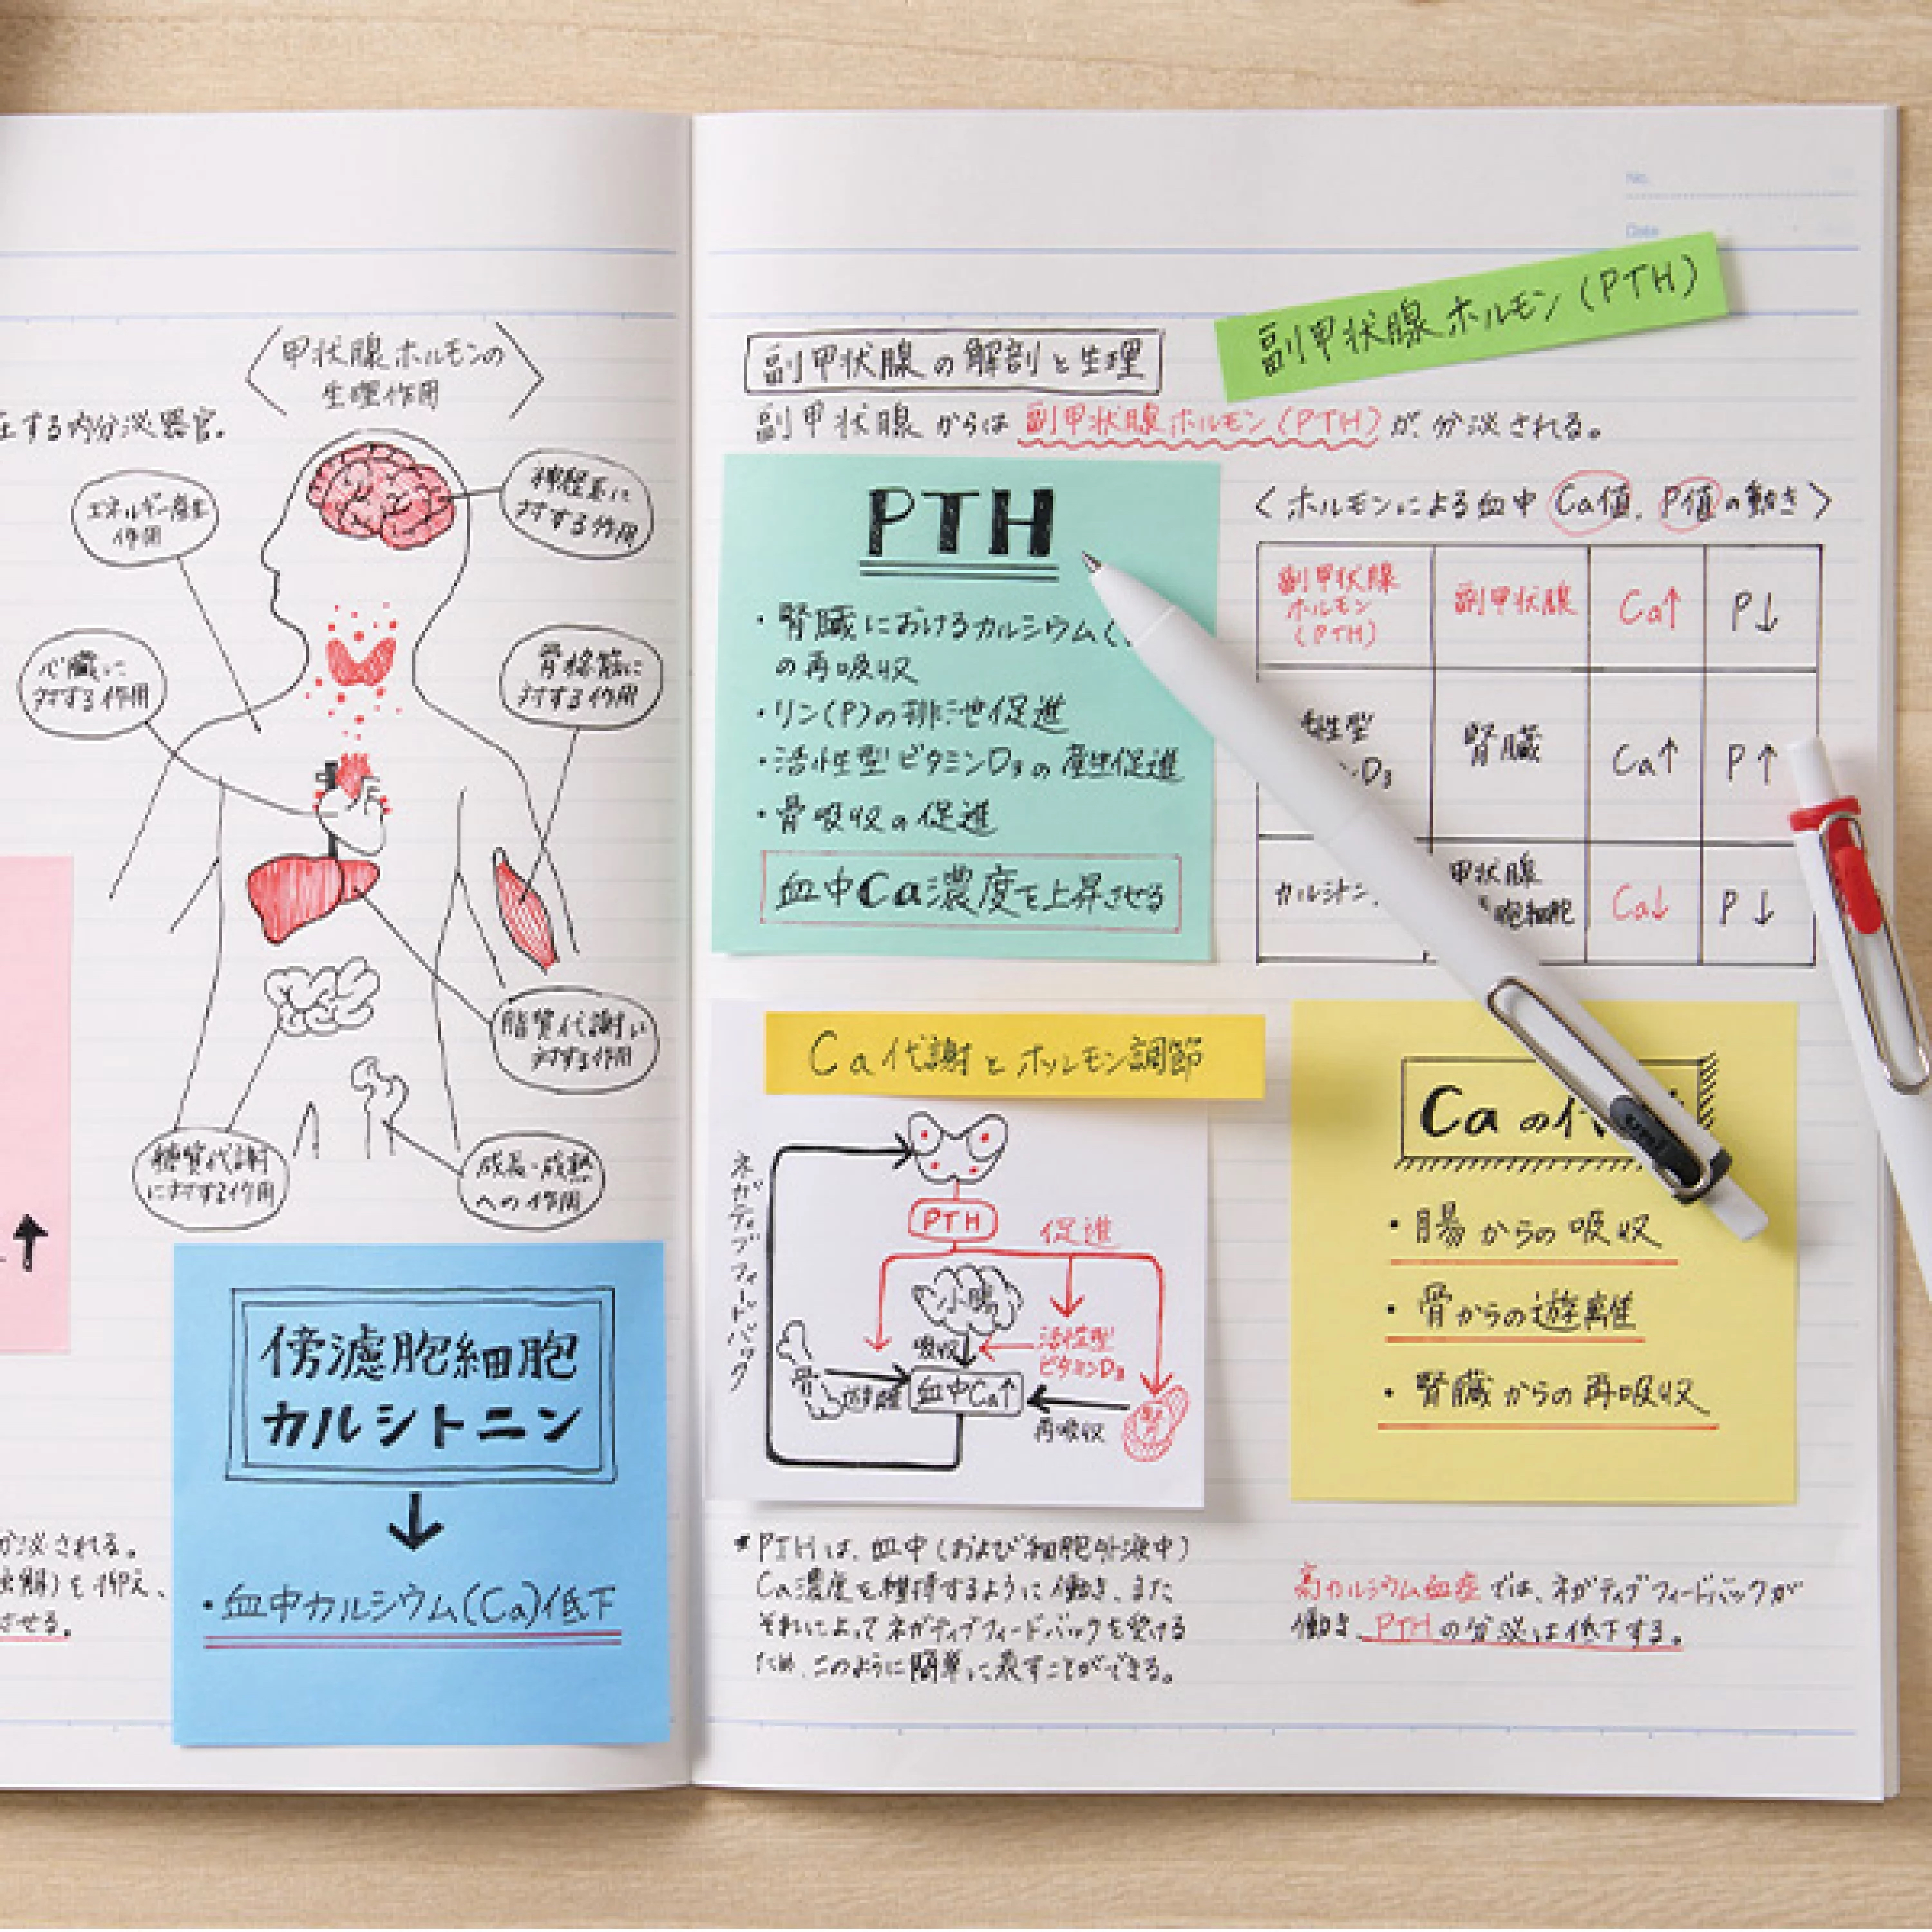 〈甲状腺ホルモンの
生理作用〉
する内分泌器官。
エネルギー産生
作用
神経系に
対する作用
心臓に
対する作用
骨格筋に
対する作用
脂質代謝に
対する作用
糖質代謝
に対する作用
成長・成熟
への作用
↑
傍濾胞細胞
カルシトニン
↓
・血中カルシウム(Ca)低下
分泌される。
を抑え、
させる。
No.
Date
副甲状腺ホルモン(PTH)
副甲状腺の解剖と生理
副甲状腺からは副甲状腺ホルモン(PTH)が、分泌される。
PTH
・腎臓におけるカルシウム(
の再吸収
・リン(P)の排泄促進
・活性型ビタミンD₃の産生促進
・骨吸収の促進
血中Ca濃度を上昇させる
〈ホルモンによる血中Ca値、P値の動き〉
副甲状腺
ホルモン
(PTH)
副甲状腺
Ca↑
P↓
性型
D₃
腎臓
Ca↑
P↑
カルシトニン
甲状腺
胞細胞
Ca↓
P↓
uni
Ca代謝とホルモン調節
ネガティブフィードバック
PTH
促進
小腸
吸収
活性型
ビタミンD₃
骨
遊離
血中Ca↑
再吸収
Caの代
・腸からの吸収
・骨からの遊離
・腎臓からの再吸収
*PTHは、血中(および細胞外液中)
Ca濃度を維持するように働き、また
それによってネガティブフィードバックを受ける
ため、このように簡単に表すことができる。
高カルシウム血症では、ネガティブフィードバックが
働き、PTHの分泌は低下する。